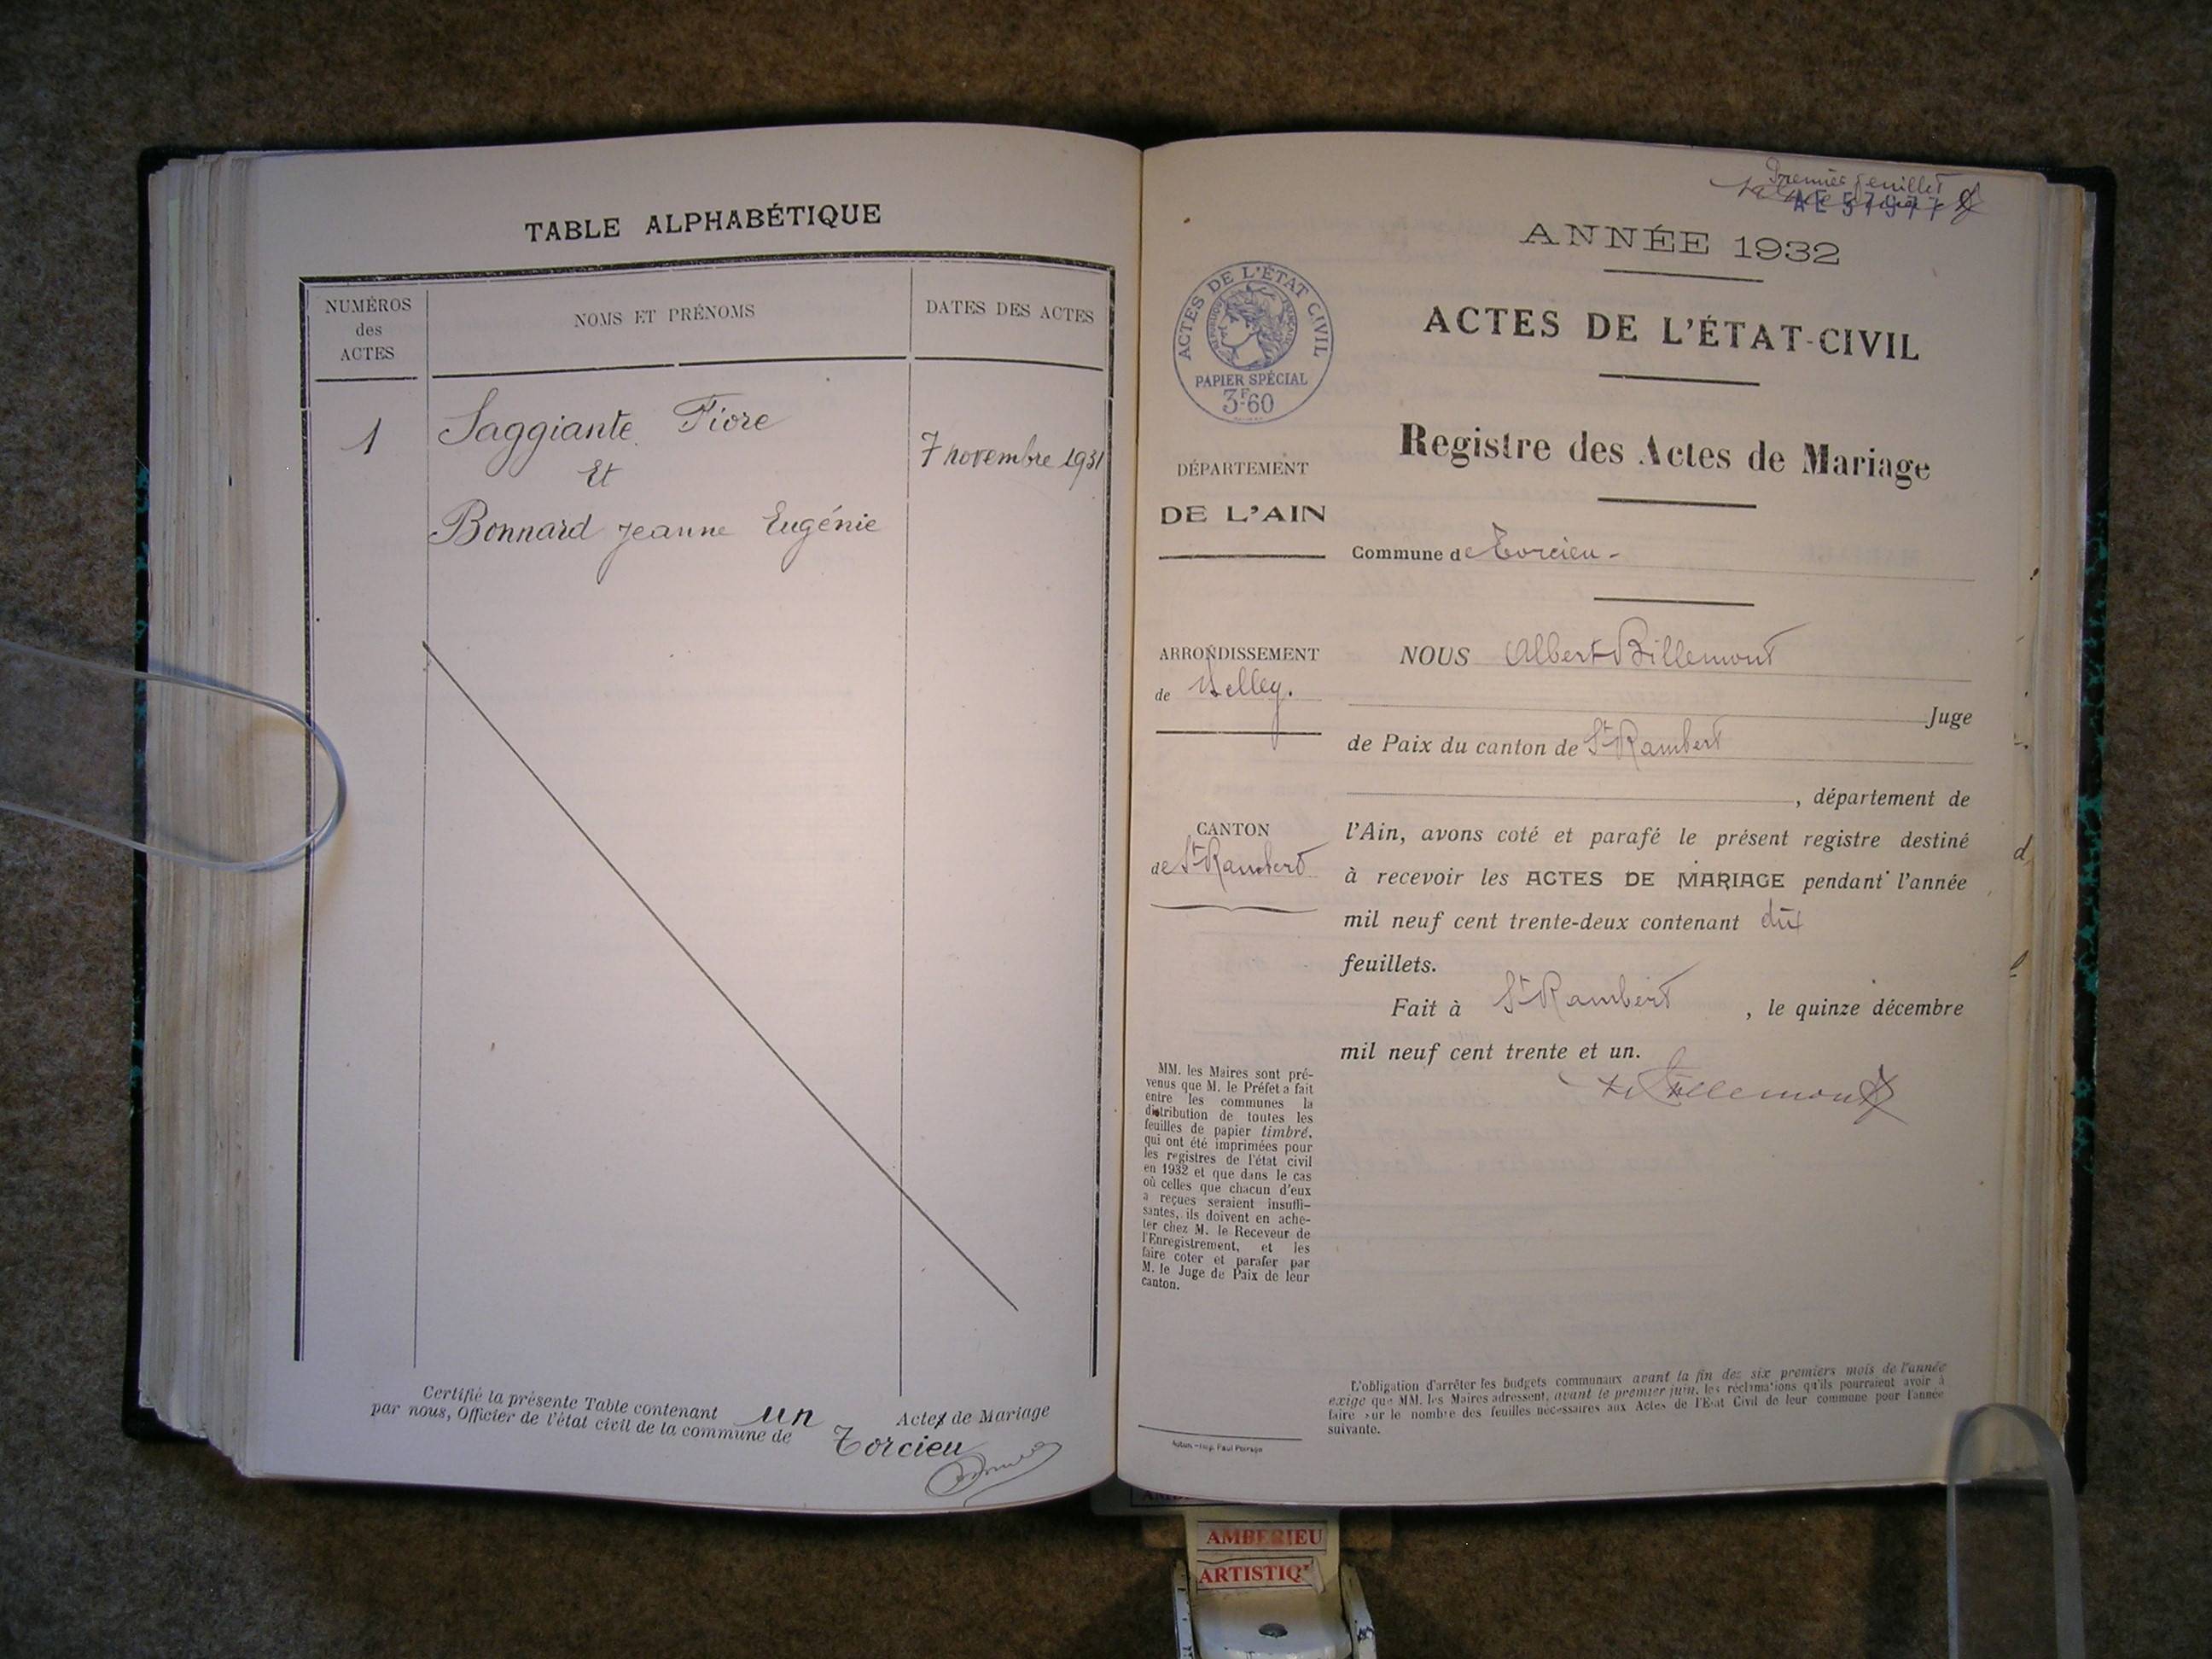 TABLE ALPHABÉTIQUE
NUMÉROS
des
ACTES
NOMS ET PRÉNOMS
DATES DES ACTES
1
Saggiante Fiore
Et
Bonnard Jeanne Eugénie
7 novembre 1931
Certifié la présente Table contenant un Actes de Mariage
par nous, Officier de l'état civil de la commune de Torcieu
Premier feuillet
AE 57977
ANNÉE 1932
ACTES DE L'ÉTAT-CIVIL
Registre des Actes de Mariage
ACTES DE L'ÉTAT CIVIL
RÉPUBLIQUE FRANÇAISE
PAPIER SPÉCIAL
3F60
DÉPARTEMENT
DE L'AIN
ARRONDISSEMENT
de Belley.
CANTON
de St Rambert
Commune de Torcieu -
NOUS Albert Billemont
Juge
de Paix du canton de St Rambert
, département de
l'Ain, avons coté et parafé le présent registre destiné
à recevoir les ACTES DE MARIAGE pendant l'année
mil neuf cent trente-deux contenant dix
feuillets.
Fait à St Rambert , le quinze décembre
mil neuf cent trente et un.
A. Billemont
MM. les Maires sont pré-
venus que M. le Préfet a fait
entre les communes la
distribution de toutes les
feuilles de papier timbré,
qui ont été imprimées pour
les registres de l'état civil
en 1932 et que dans le cas
où celles que chacun d'eux
a reçues seraient insuffi-
santes, ils doivent en ache-
ter chez M. le Receveur de
l'Enregistrement, et les
faire coter et parafer par
M. le Juge de Paix de leur
canton.
L'obligation d'arrêter les budgets communaux avant la fin des six premiers mois de l'année
exige que MM. les Maires adressent, avant le premier juin, les réclamations qu'ils pourraient avoir à
faire sur le nombre des feuilles nécessaires aux Actes de l'Etat Civil de leur commune pour l'année
suivante.
AMBERIEU
ARTISTIQ